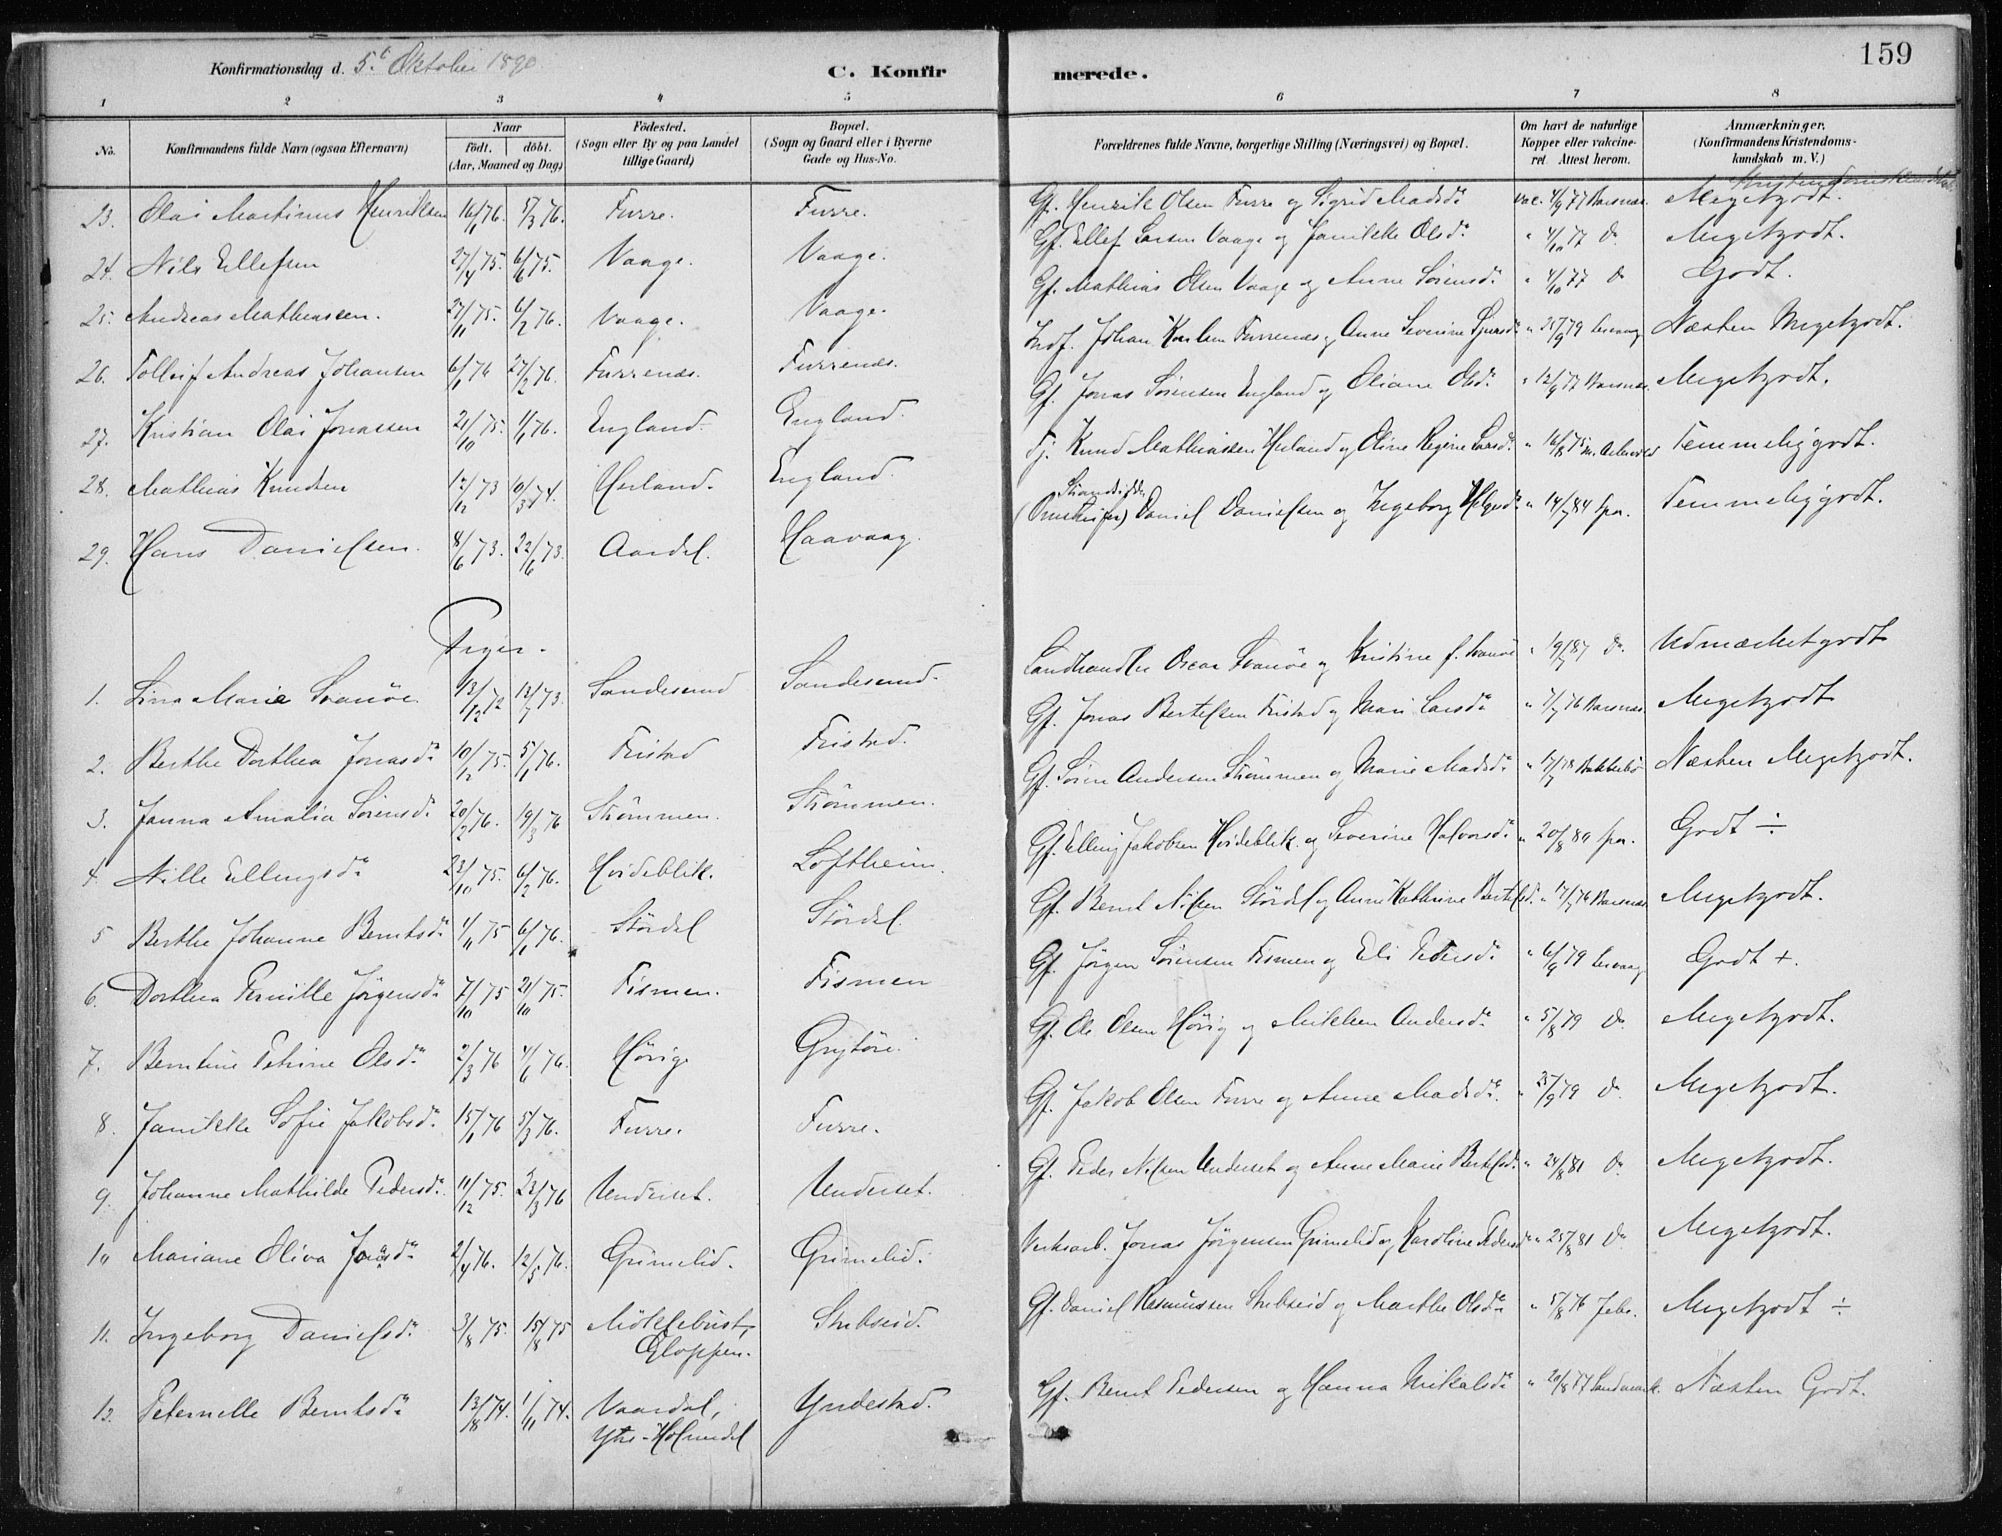 159
Konfirmationsdag d. 5.t Oktober 1890
C. Konfirmerede.
1 2 3 4 5 6 7 8
No. Konfirmandens fulde Navn (ogsaa Efternavn) Naar Födt. döbt. (Aar, Maaned og Dag) Födested. (Sogn eller By og paa Landet tillige Gaard) Bopæl. (Sogn og Gaard eller i Byerne Gade og Hus-No. Forældrenes fulde Navne, borgerlige Stilling (Næringsvei) og Bopæl. Om havt de naturlige Kopper eller vakcineret. Attest herom. Anmærkninger. (Konfirmandens Kristendomskundskab m. V.)
23. Olai Martinus Henriksen 16/1 76. 5/3 76. Furre. Furre. Gf. Henrik Olsen Furre og Sigrid Madsdr vac. 4/9 77 Meget godt.
24. Nils Ellefsen 27/4 75. 6/6 75. Vaage. Vaage. Gf. Ellef Larsen Vaage og Janikke Olsdr " 4/10 77 do Meget godt.
25. Andreas Mathiassen. 27/11 75. 6/2 76. Vaage. Vaage. Gf. Mathias Olsen Vaage og Anne Sørensdr " 4/10 77 do Godt.
26. Tolleif Andreas Johansen 6/1 76 27/2 76. Furrenes. Furrenes. Indf. Johan Karlsen Furrenes og Anne Severine Sjursdr " 25/9 79 Næsten Meget godt.
27. Kristian Olai Jonassen 21/10 75. 1/1 76. England. England. Gf. Jonas Sørensen England og Oliane Olsdr " 12/9 77 Meget godt.
28. Mathias Knudsen 12/12 73 10/3 74. Herland. England. Tj. Knud Mathiassen Herland og Oline Regine Larsdr " 16/8 75 Temmelig godt.
29. Hans Danielsen. 8/6 73. 22/6 73. Aardal. Haavaag. Strandsidder Daniel Danielsen og Ingeborg Helgesdr " 14/7 84 Temmelig godt.
Piger.
1. Lina Marie Svanøe 13/12 72 13/7 73. Sandesund Sandesund. Landhandler Oscar Svanøe og Kristine f. Svanøe " 19/7 87 do Udmærket godt
2. Berthe Dorthea Jonasdr 10/12 75. 5/1 76. Fristad Fristad. Gf. Jonas Bertelsen Fristad og Mari Larsdr " 7/7 76 Meget godt
3. Janna Amalia Sørensdr 20/2 76. 19/3 76 Strømmen. Strømmen. Gf. Søren Andersen Strømmen og Marie Madsdr " 17/7 78 Næsten Meget godt.
4. Nille Ellingsdr 23/10 75. 6/2 76. Hvideblik. Loftheim. Gf. Elling Jakobsen Hvideblik og Severine Halvorsdr " 20/8 84 Godt ÷
5 Berthe Johanne Berntsdr 1/11 75 6/1 76. Stórdal Stórdal. Gf. Bernt Nilsen Stórdal og Anne Kathrine Bertelsdr " 17/7 76 Meget godt.
6. Dorthea Pernille Jørgensdr 7/10 75 21/10 75. Fismen. Fismen Gf. Jørgen Sørensen Fismen og Eli Pedersdr " 6/9 79 Godt +.
7. Berntine Petrine Olsdr 2/3 76 4/6 76. Hørig Grytøre. Gf. Ole Olsen Hørig og Mikline Andersdr " 5/8 79 do Meget godt.
8. Janikke Sofie Jakobsdr 15/1 76 5/3 76. Furre. Furre. Gf. Jakob Olsen Furre og Anne Madsdr " 25/9 79 do Meget godt.
9. Johanne Mathilde Pedersdr 11/12 75. 23/3 76 Underset. Underset. Gf. Peder Nilsen Underset og Anne Marie Bertelsdr " 24/8 81 do Meget godt.
10 Mariane Oliva Jonasdr 2/4 76. 12/5 76. Grimelid. Grimelid. Verksarb. Jonas Jørgensen Grimelid og Karoline Pedersdr " 25/8 81 do Meget godt.
11. Ingeborg Danielsdr 3/8 75. 15/8 75 Møklebust, Gloppen. Stubseid. Gf. Daniel Rasmussen Stubseid og Marthe Olsdr " 5/8 76 Meget godt ÷
12. Peternelle Berntsdr 13/8 74. 1/11 74. Vaardal, Ytre-Holmedal Yndestad. Gf. Bernt Pedersen og Hanna Mikalsdr " 20/8 77 Næsten Godt.